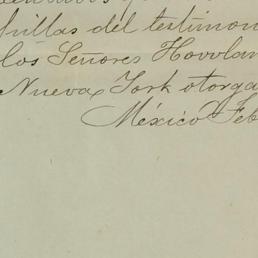 del testimon
los Señores Hovolan
Nueva York otorga
México Feb